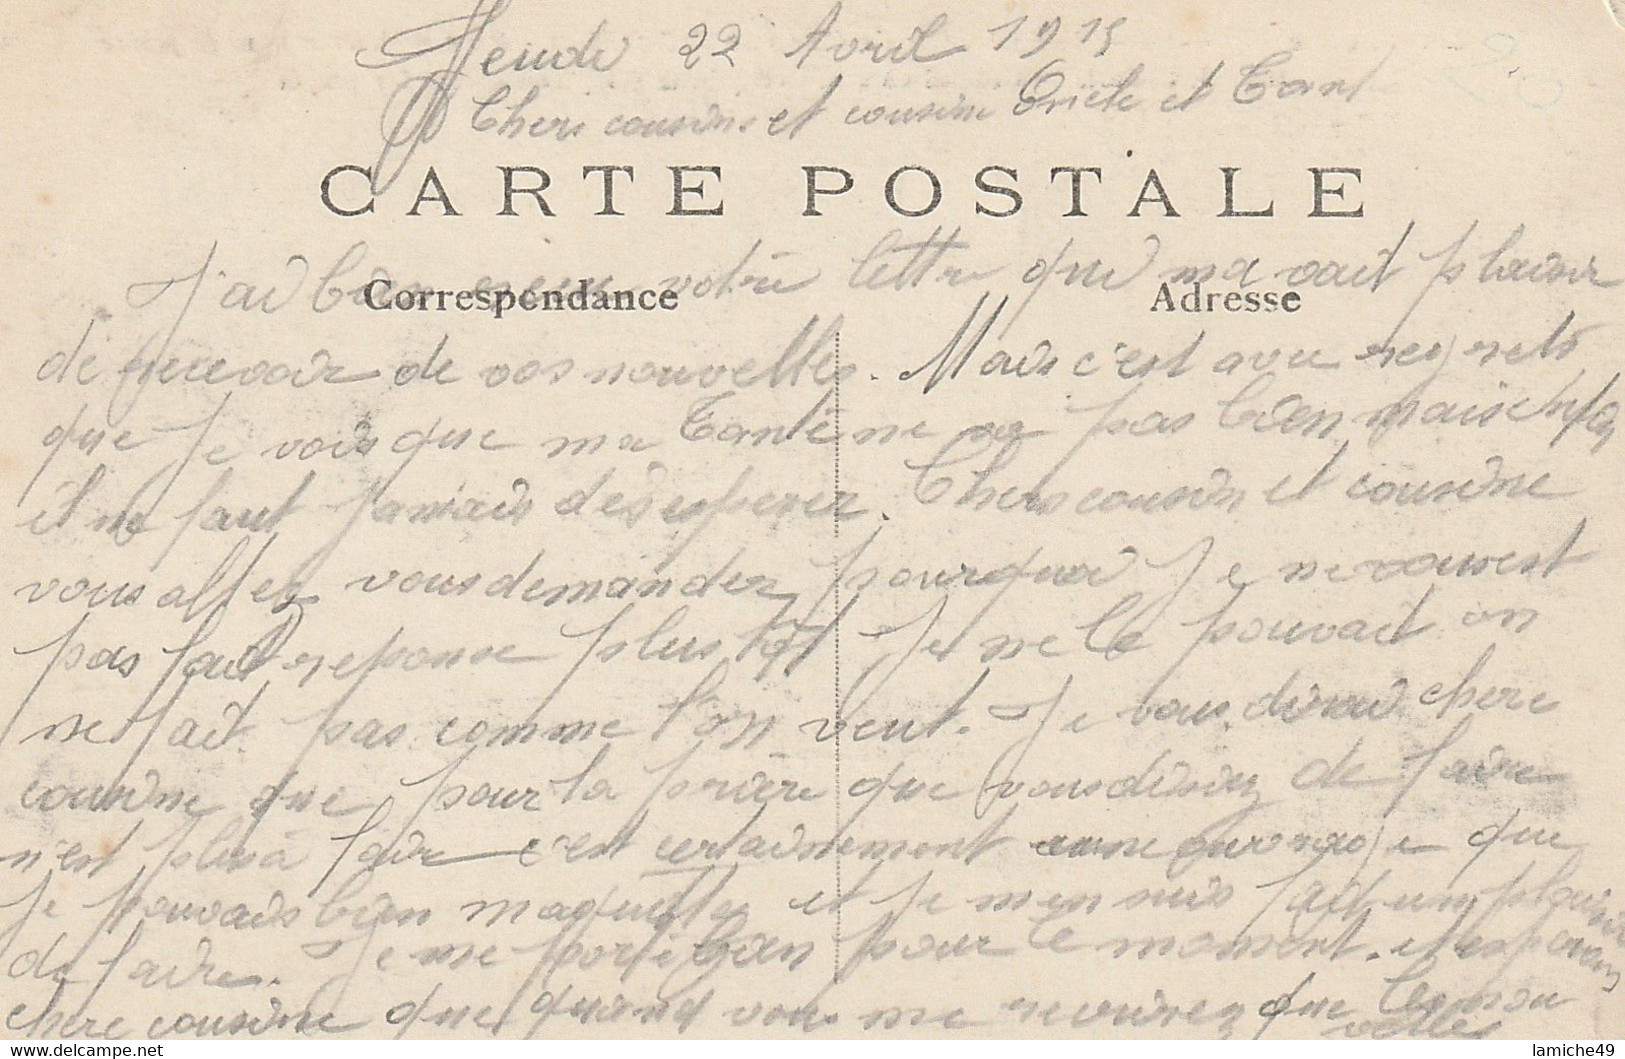 Jeudi 22 Avril 1915
Chers cousins et cousine Oncle et Tante
CARTE POSTALE
J'ai bien reçu votre lettre qui ma vait plaisir
Correspondance Adresse
de recevoir de vos nouvelles. Mais c'est avec regrets
que je vois que ma Tante ne va pas bien mais enfin
il ne faut jamais désesperer. Chers cousin et cousine
vous aller vous demander pourquoi je ne vous est
pas fait reponse plus tôt Je ne le pouvait on
ne fait pas comme l'on veut. Je vous dirai chere
cousine que pour la prière que vous disiez de faire
n'est plus à faire c'est certainement une que
je pouvais bien et je men suis fait un plaisir
de faire. Je me porte bien pour le moment. et esperons
chere cousine que quand vous me revoirez que les nou
velles
lamiche49